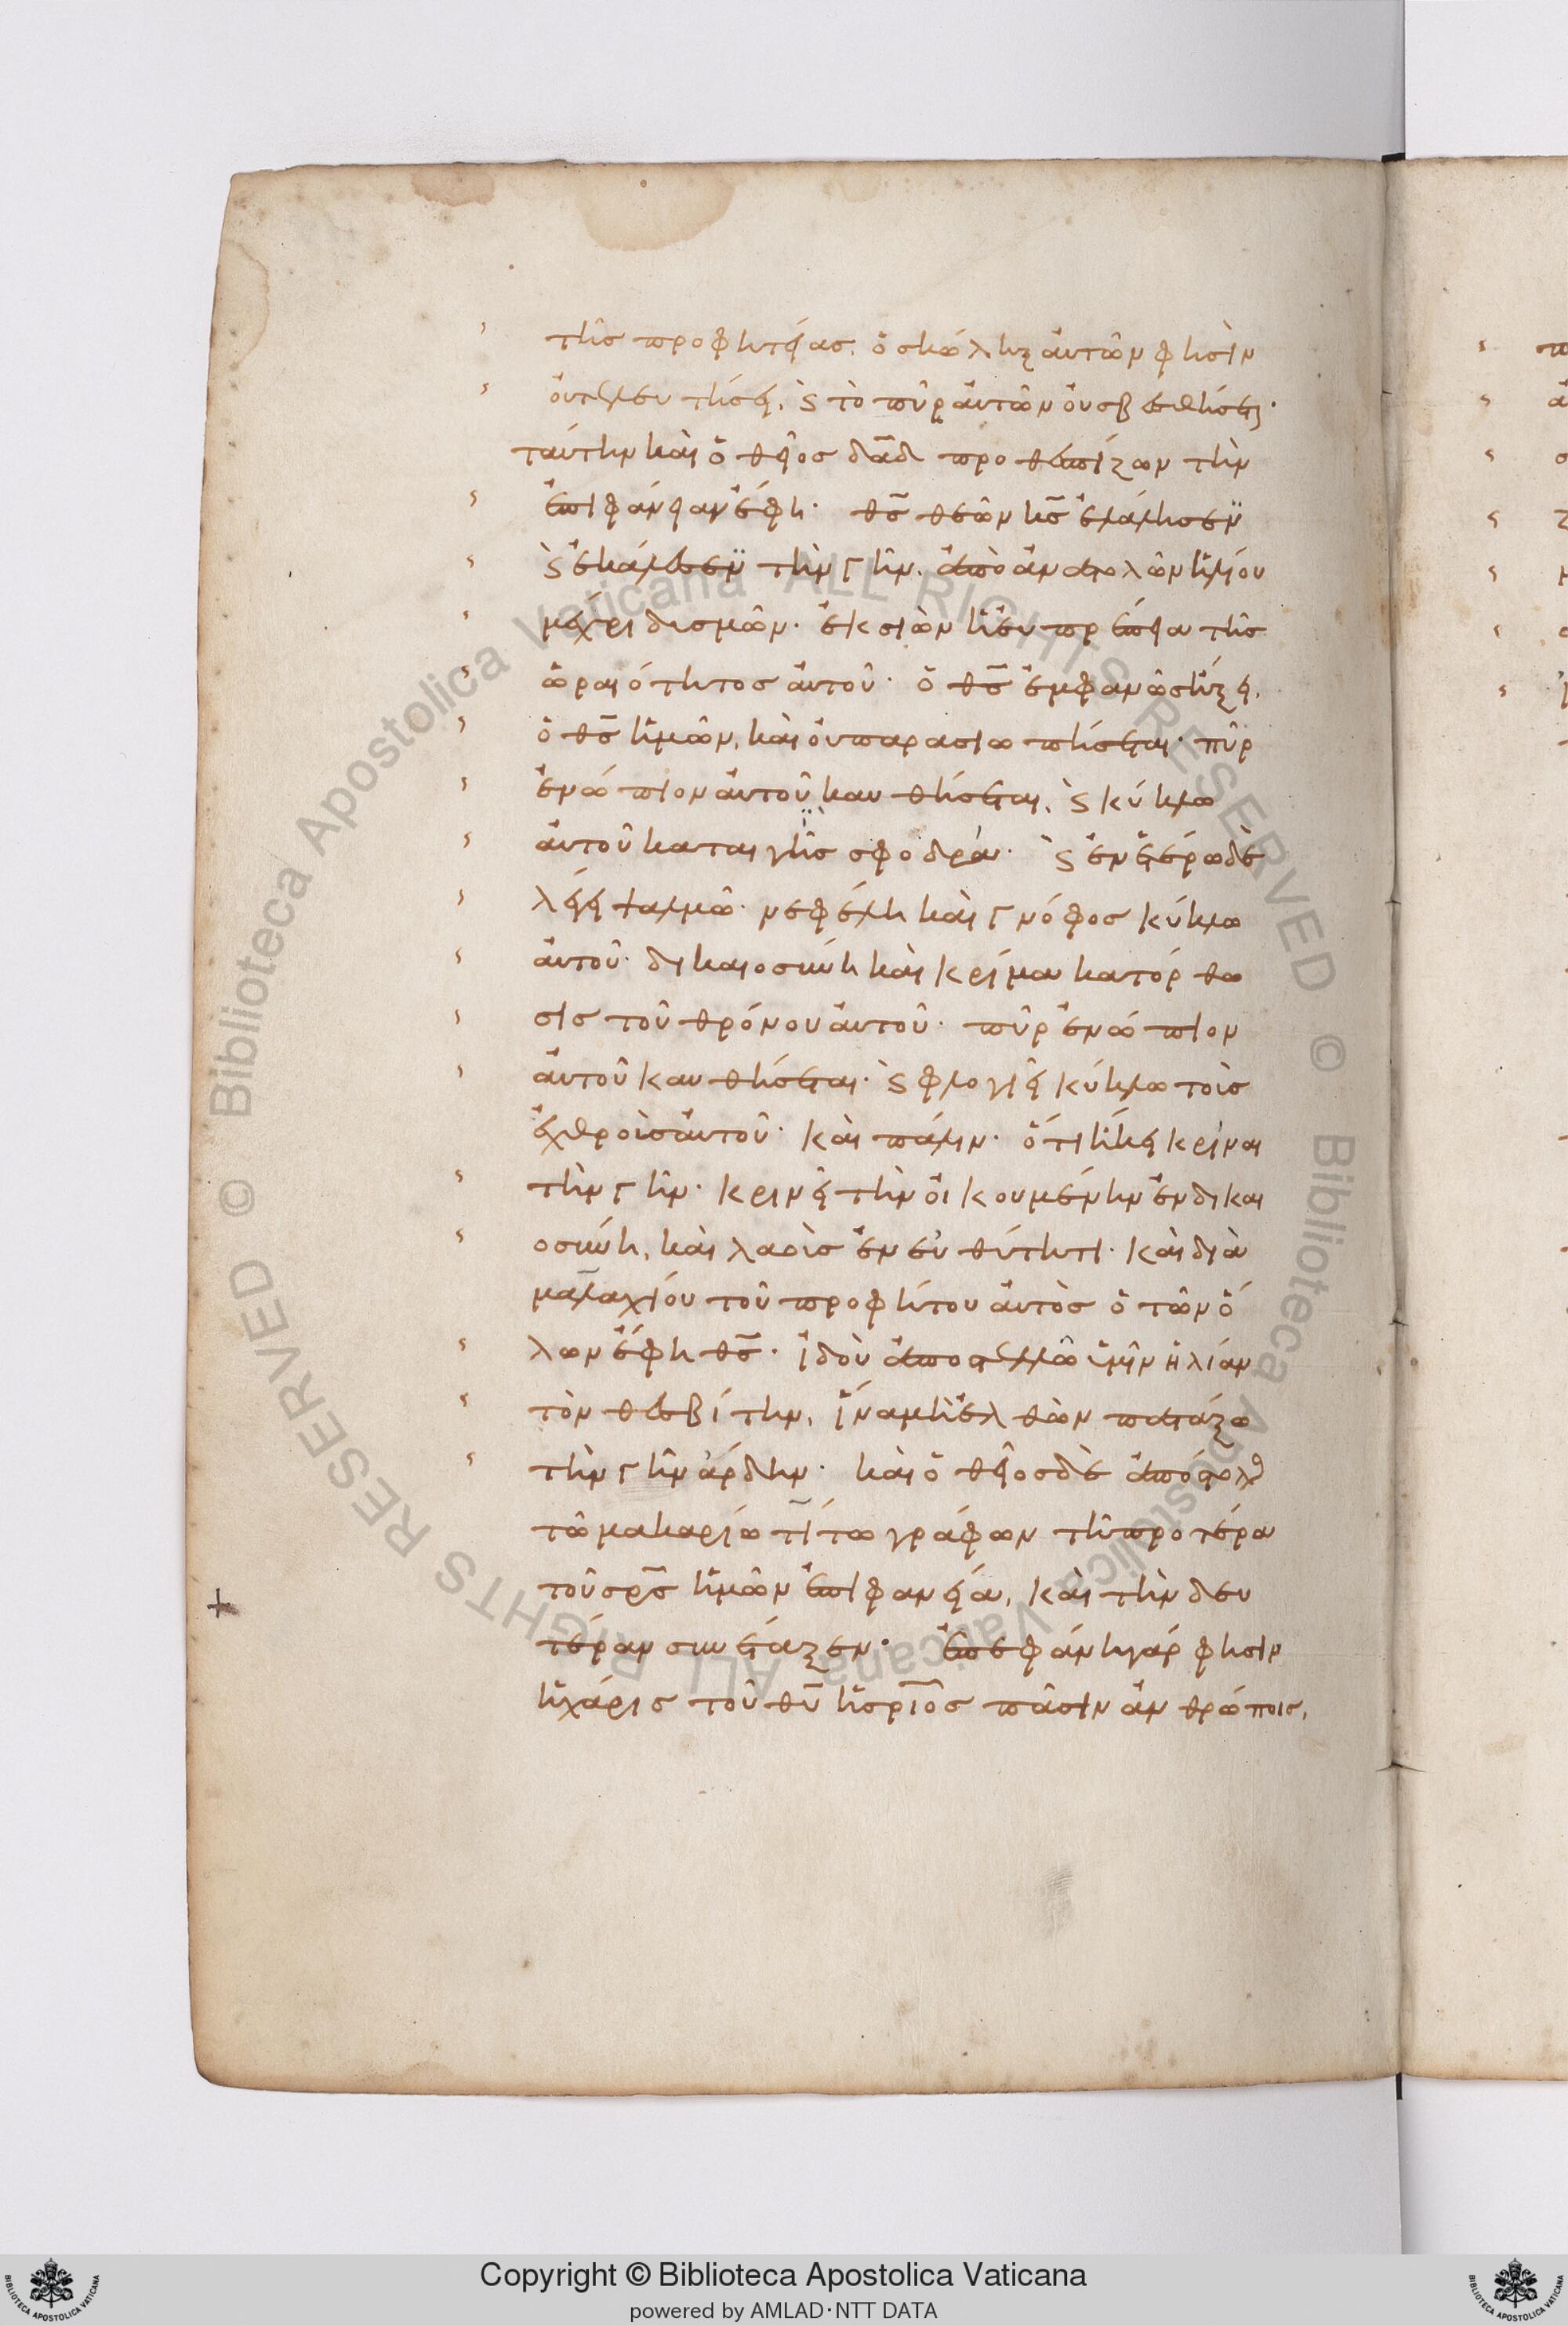 τῆς προφητείας. ὁ σκώληξ αὐτῶν φησὶν
οὐ τελευτήσει. ϗ τὸ πῦρ αὐτῶν οὐ σβεσθήσεται·
ταύτην καὶ ὁ θεῖος δᾱδ προθεσπίζων τὴν
ἐπιφάνειαν ἔφη· θς̄ θεῶν κς̄ ἐλάλησεν̈
ϗ ἐκάλεσεν̈ τὴν γῆν. ἀπὸ ἀνατολῶν ἡλίου
μέχρι δυσμῶν. ἐκ σιὼν ἡ εὐπρέπεια τῆς
ὡραιότητος αὐτοῦ· ὁ θς̄ ἐμφανῶς ἥξει.
ὁ θς̄ ἡμῶν, καὶ οὐ παρασιωπήσεται· πῦρ
ἐνώπιον αὐτοῦ καυθήσεται. ϗ κύκλω
αὐτοῦ καταιγῒς σφοδρά· ϗ ἐν ἑτέρω δὲ
λέγει ψαλμῶ· νεφέλη καὶ γνόφος κύκλω
αὐτοῦ· δικαιοσύνη καὶ κρίμα κατόρθω
σις τοῦ θρόνου αὐτοῦ· πῦρ ἐνώπιον
αὐτοῦ καυθήσεται· ϗ φλογιεῖ κύκλω τοὺς
ἐχθροὺς αὐτοῦ· καὶ πάλιν· ὅτι ἥκει κρίναι
τὴν γῆν· κρινεῖ τὴν οἰκουμένην ἐν δικαι
οσύνη, καὶ λαοὺς ἐν εὐθύτητι· καὶ διὰ
μαλαχίου τοῦ προφήτου αὐτὸς ὁ τῶν ὅ
λων ἔφη θς̄· ἰδοὺ ἀποστελλῶ ὑμῖν ἠλίαν
τὸν θεσβίτην, ἵνα μὴ ἐλθὼν πατάξω
τὴν γῆν ἄρδην· καὶ ὁ θεῖος δὲ ἀπόστολ
τῶ μακαρίω τίτω γράφων τῆ προτέρα
τοῦ σρ̄ς ἡμῶν ἐπιφανεία, καὶ τὴν δευ
τέραν συνέταξεν· ἐπεφάνη γάρ φησιν
ἡ χάρις τοῦ θῡ ἡ σρ̄ιος πᾶσιν ἀνθρώποις,
Copyright © Biblioteca Apostolica Vaticana
powered by AMLAD·NTT DATA